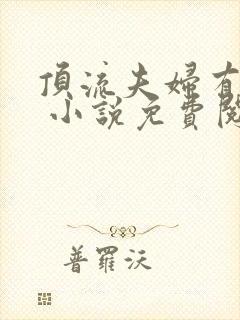 頂流夫婦有
小說免費閱
普羅沃